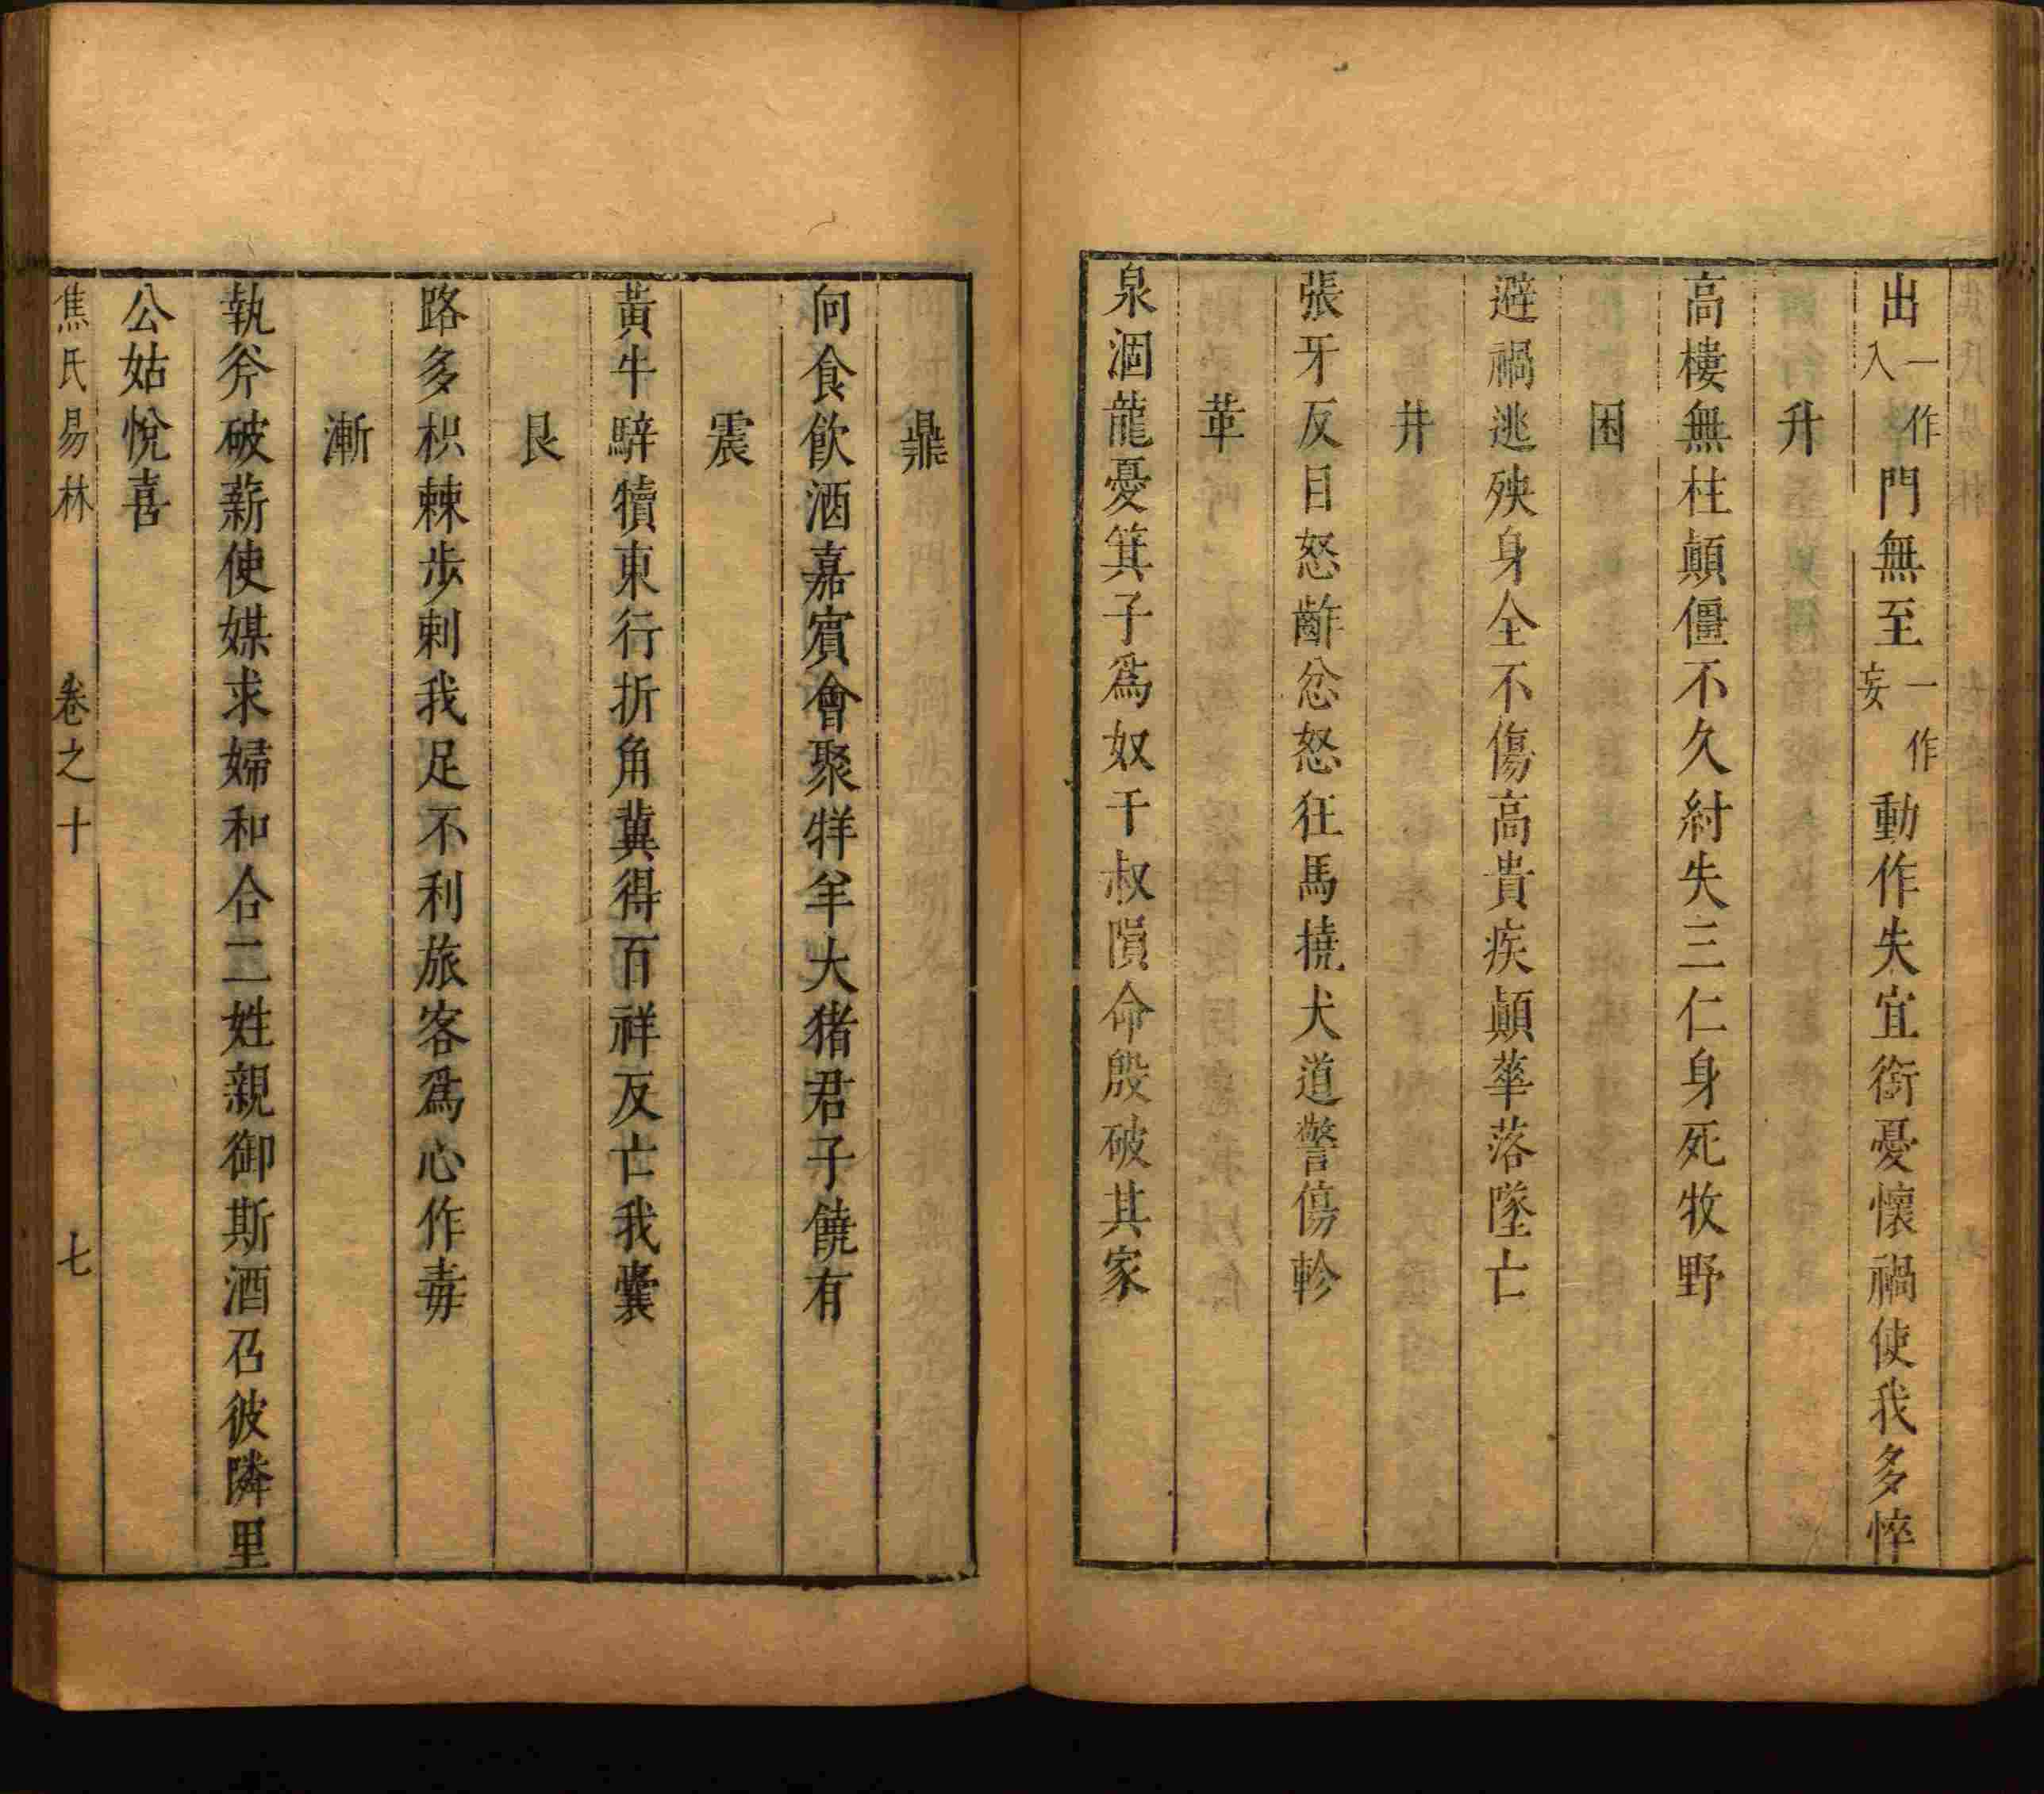 出一作入門無至一作妄動作失宜銜憂懷禍使我多悴
升
高樓無柱顛僵不久紂失三仁身死牧野
困
避禍逃殃身全不傷高貴疾顛華落墜亡
井
張牙反目怒齚忿怒狂馬撓犬道警傷軫
革
泉涸龍憂箕子爲奴干叔隕命殷破其家
鼎
向食飲酒嘉賓會聚牂羊大猪君子饒有
震
黃牛騂犢東行折角冀得百祥反亡我囊
艮
路多枳棘步刺我足不利旅客爲心作毒
漸
執斧破薪使媒求婦和合二姓親御斯酒召彼隣里
公姑悅喜
焦氏易林 卷之十 七